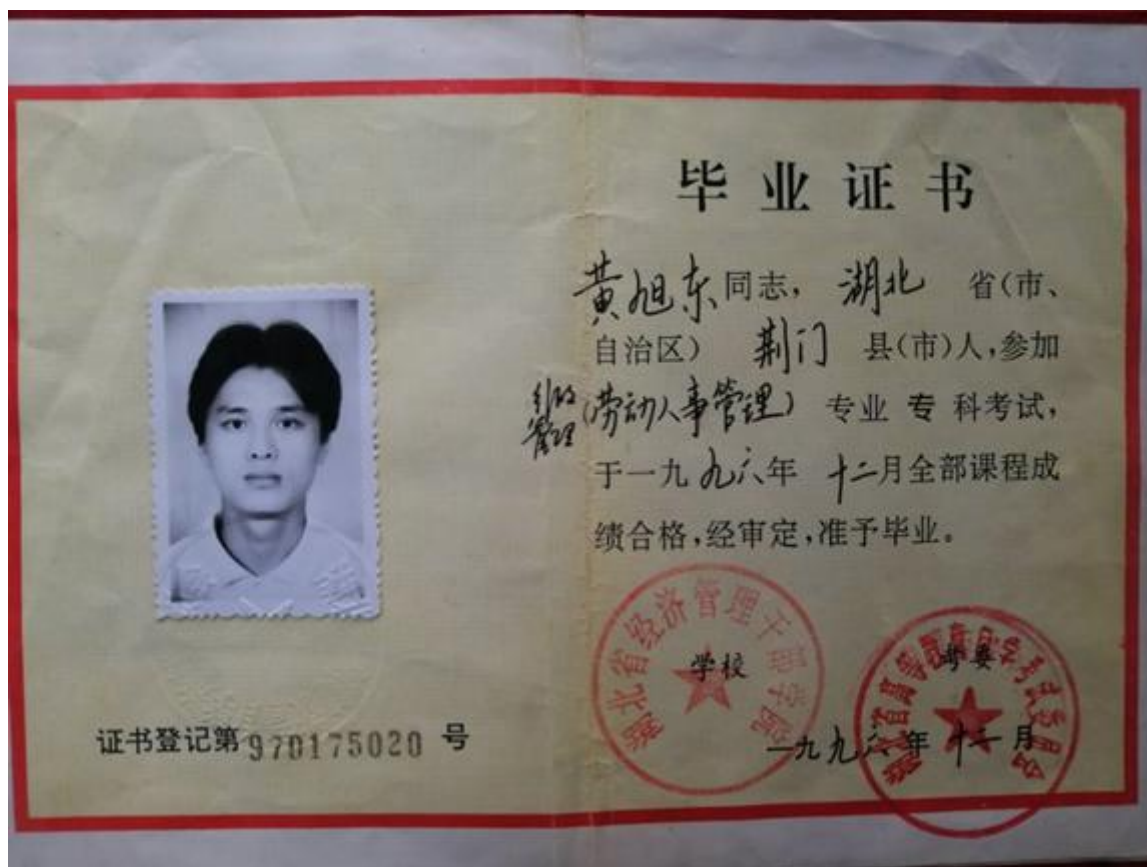 毕业证书
黄旭东同志，湖北 省(市、
自治区) 荆门 县(市)人，参加
行政管理(劳动人事管理) 专业 专 科考试，
于一九九六年 十二月全部课程成
绩合格，经审定，准予毕业。
湖北省经济管理干部学院
学校
湖北省高等教育自学考试委员会
考委
一九九六年十二月
证书登记第 970175020 号